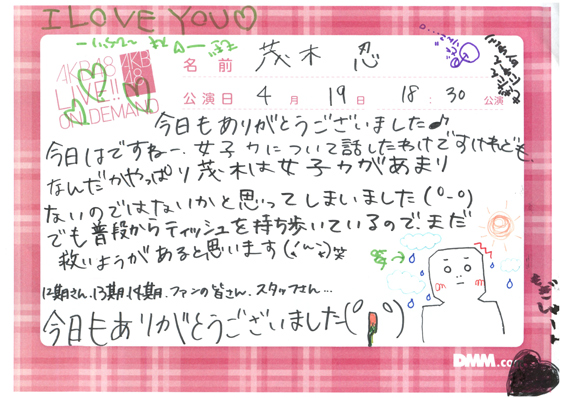 I LOVE YOU♡
AKB48
LIVE!!
ON DEMAND
AKB
48
名前 茂木 忍
公演日 4月 19日 18:30 公演
今日もありがとうございました♪
今日はですねー、女子力について話したわけですけれども、
なんだかやっぱり茂木は女子力があまり
ないのではないかと思ってしまいました(°-°)
でも普段からティッシュを持ち歩いているので、まだ
救いようがあると思います(´~`)笑
12期さん、13期、14期、ファンの皆さん、スタッフさん…
今日もありがとうございました(° °)
DMM.co